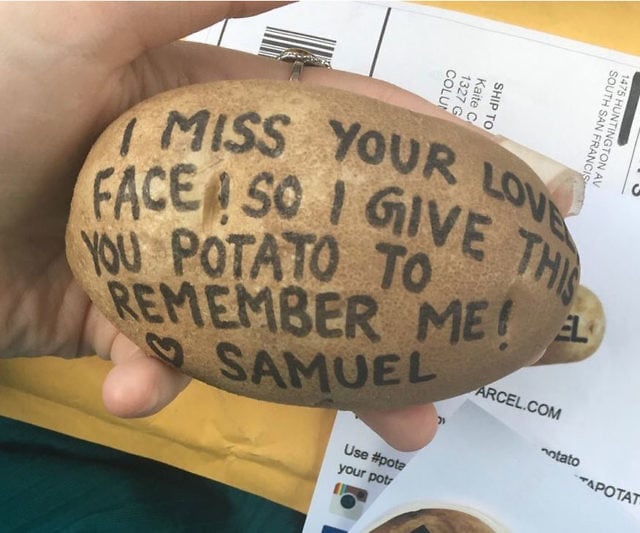 I MISS YOUR LOVE
FACE! SO I GIVE THIS
YOU POTATO TO
REMEMBER ME!
♡ SAMUEL
1475 HUNTINGTON AV
SOUTH SAN FRANCIS
SHIP TO
Kaite C
1327 G
COLU
EL
ARCEL.COM
Use #pota
your pot
potato
TAPOTAT